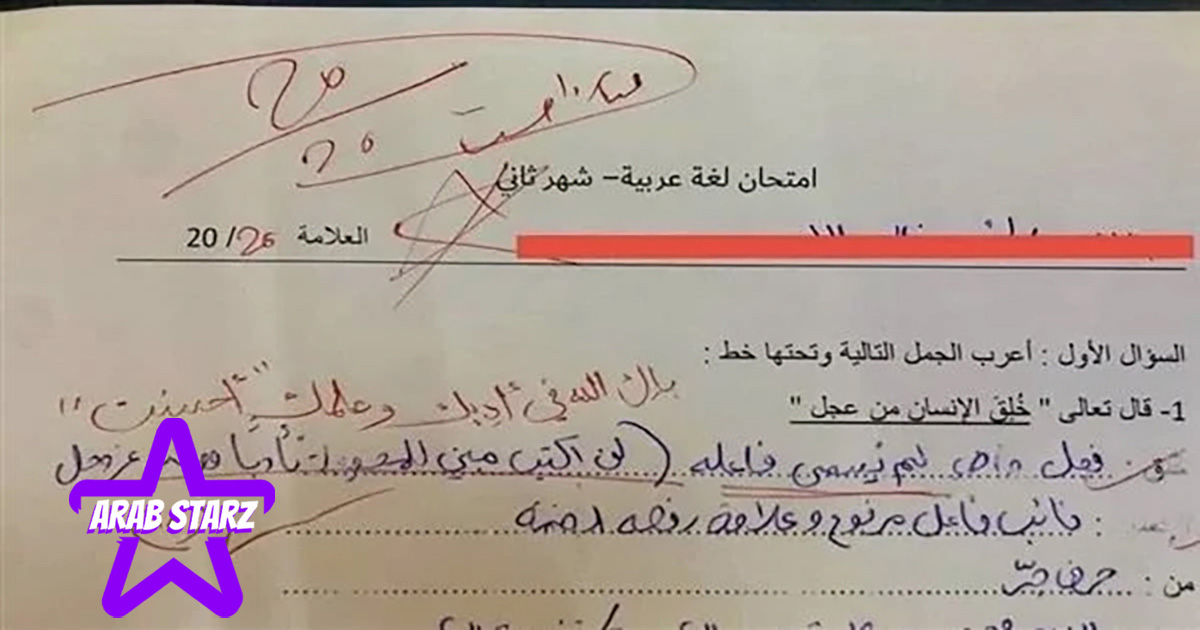 20
20
احسنت
امتحان لغة عربية– شهر ثاني
العلامة 20/ 20
السؤال الأول : أعرب الجمل التالية وتحتها خط :
بارك الله في أدبك وعلمك "أحسنت"
1- قال تعالى " خُلِقَ الإنسان من عجل "
فعل ماض لم يُسمى فاعله (لن اكتب مبني للمجهول تأدبا مع عز وجل
: نائب فاعل مرفوع وعلامة رفعه الضمة
من : حرف جرّ
ARAB STARZ